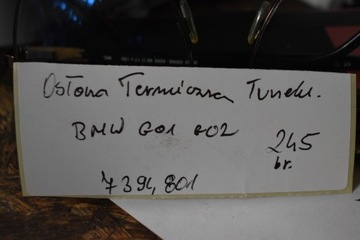 Osłona Termiczna Tunelu.
BMW G01 G02
245
br.
7394801